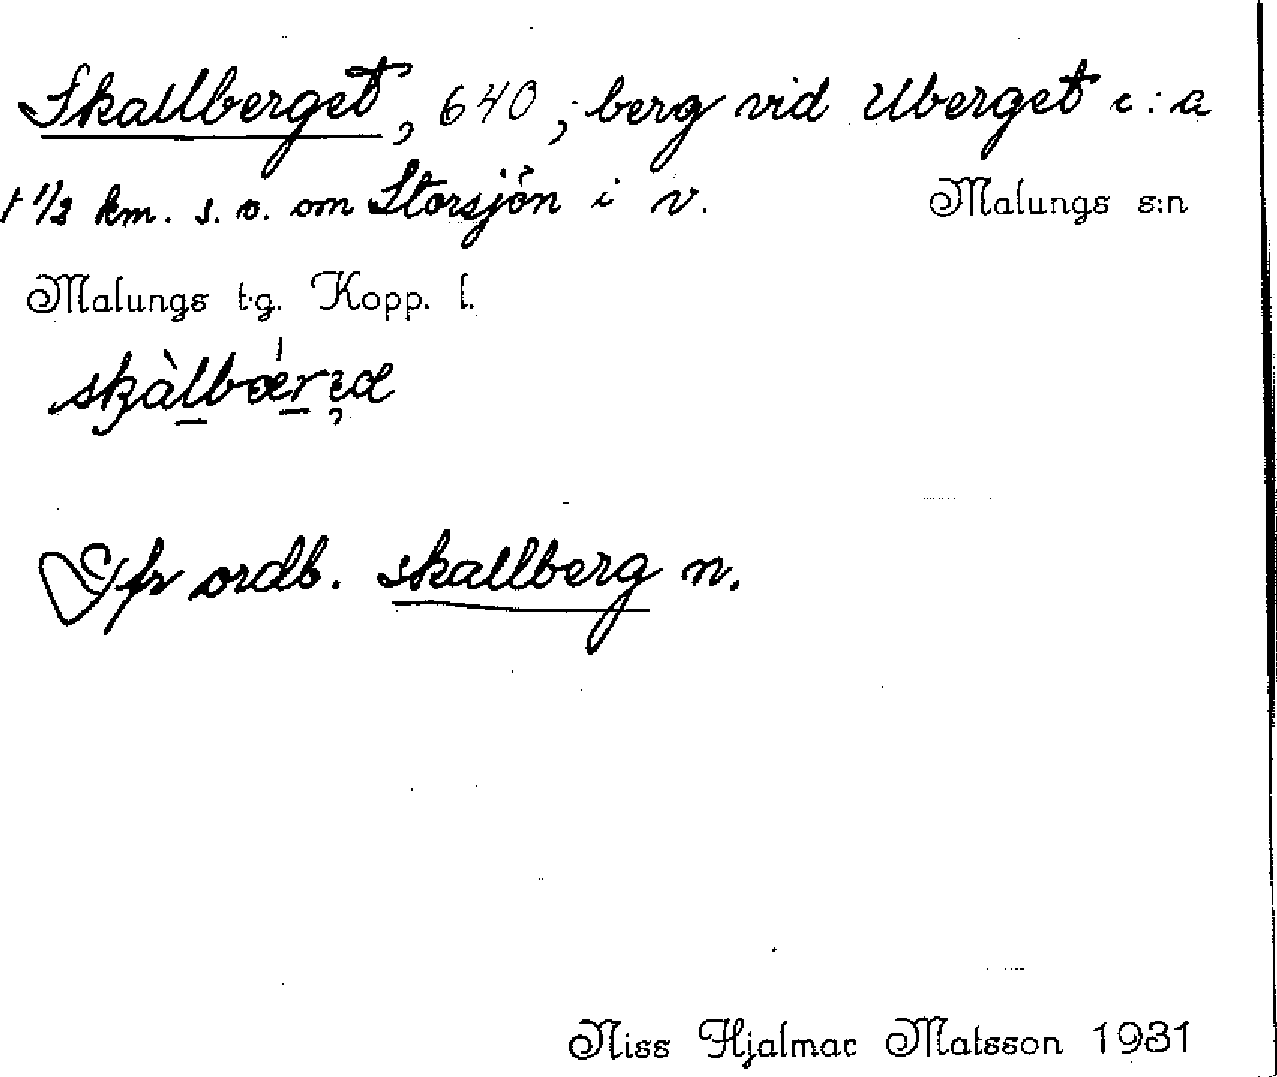 Skallberget, 640; berg vid Uberget c:a
1 1/2 km. s. o. om Storsjön i v. Malungs s:n
Malungs t.g. Kopp. l.
fr ordb. skallberg n.
Niss Hjalmar Matsson 1931